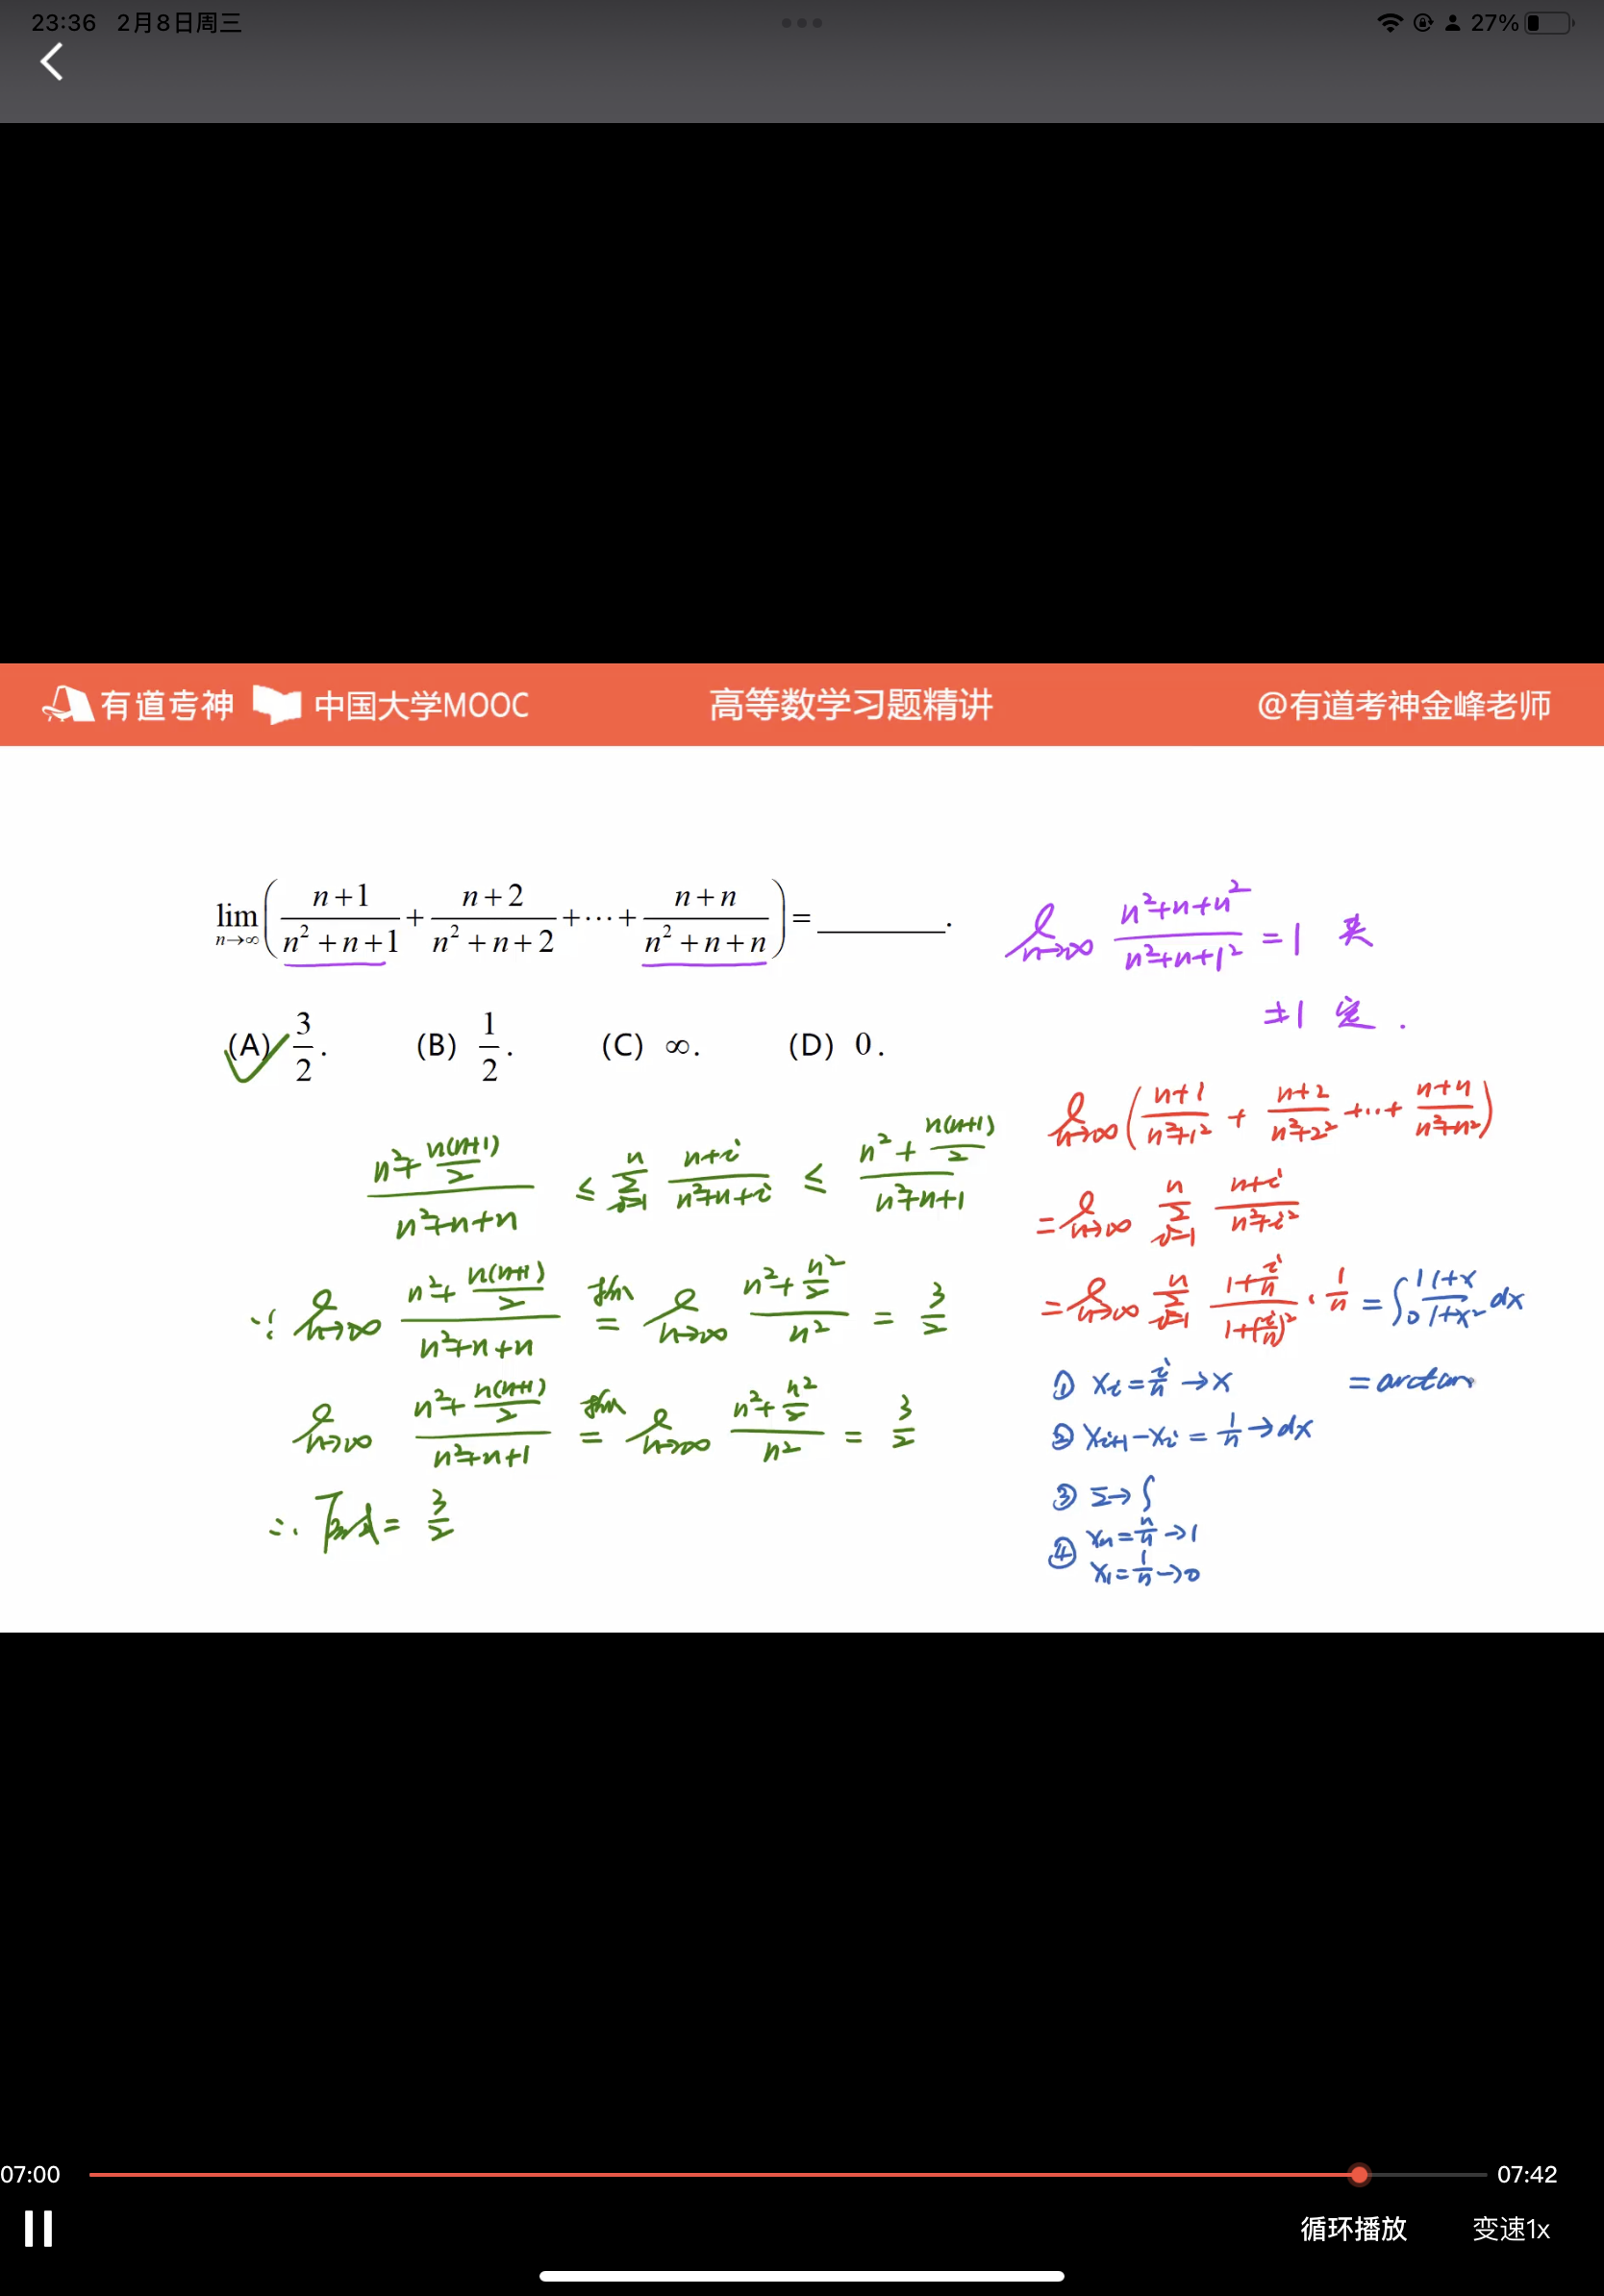 23:36 2月8日周三 27%
有道考神 中国大学MOOC 高等数学习题精讲 @有道考神金峰老师
lim n→∞ ( (n+1)/(n²+n+1) + (n+2)/(n²+n+2) + ⋯ + (n+n)/(n²+n+n) ) = ________.
(A) 3/2. (B) 1/2. (C) ∞. (D) 0.
(n²+n(n+1)/2)/(n²+n+n) ≤ Σ i=1 n (n+i)/(n²+n+i) ≤ (n²+n(n+1)/2)/(n²+n+1)
∵ lim n→∞ (n²+n(n+1)/2)/(n²+n+n) 抓大 = lim n→∞ (n²+n²/2)/n² = 3/2
lim n→∞ (n²+n(n+1)/2)/(n²+n+1) 抓大 = lim n→∞ (n²+n²/2)/n² = 3/2
∴ 原式 = 3/2
lim n→∞ (n²+n+n²)/(n²+n+1²) = 1 夹
≠1 定.
lim n→∞ ( (n+1)/(n²+1²) + (n+2)/(n²+2²) + ⋯ + (n+n)/(n²+n²) )
= lim n→∞ Σ i=1 n (n+i)/(n²+i²)
= lim n→∞ Σ i=1 n (1+i/n)/(1+(i/n)²) · 1/n = ∫₀¹ (1+x)/(1+x²) dx
① xᵢ = i/n → x = arctan
② xᵢ₊₁ − xᵢ = 1/n → dx
③ Σ → ∫
④ xₙ = n/n → 1
x₁ = 1/n → 0
07:00 07:42
循环播放 变速1x